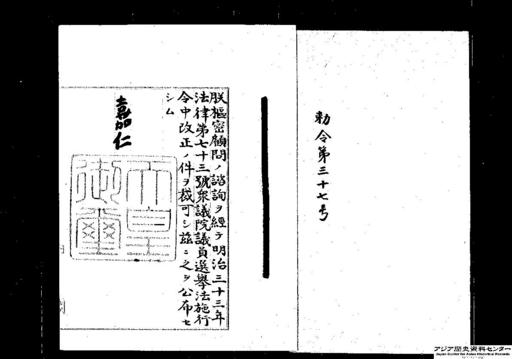 勅令第三十七号
朕樞密顧問ノ諮詢ヲ經テ明治三十三年
法律第七十三號衆議院議員選擧法施行
令中改正ノ件ヲ裁可シ茲ニ之ヲ公布セ
シム
嘉仁
天皇
御璽
アジア歴史資料センター
Japan Center for Asian Historical Records